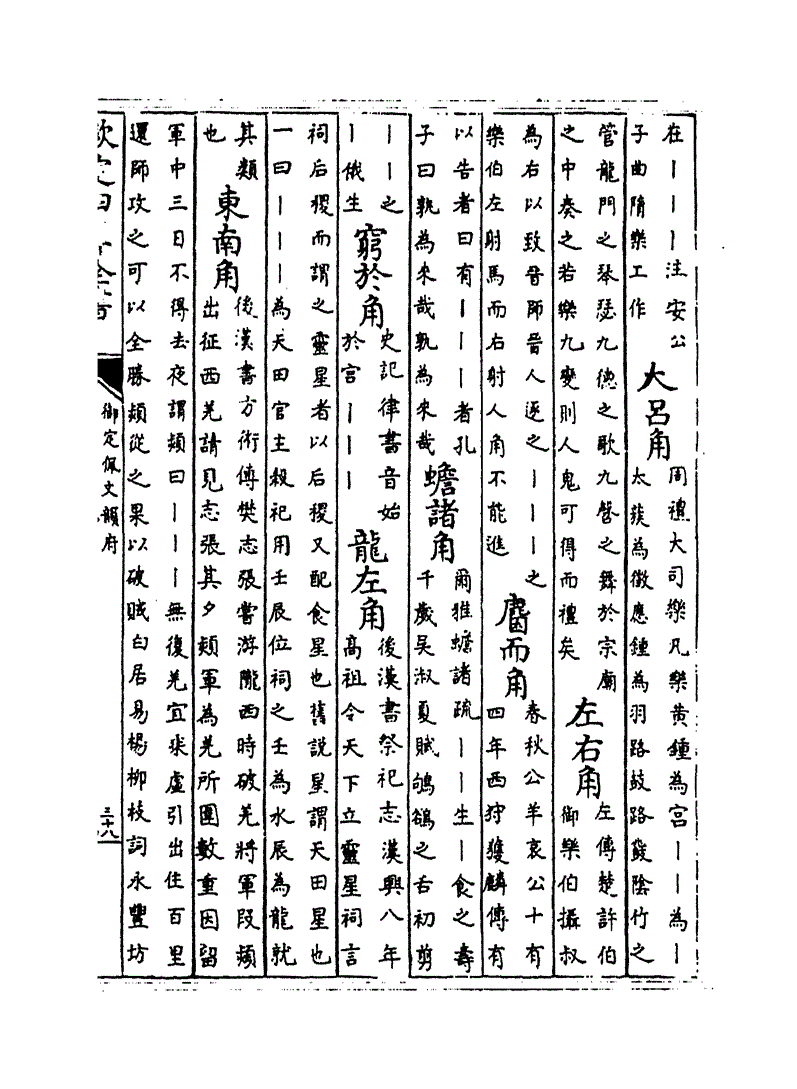 在｜｜｜注安公
子曲隋樂工作
大呂角
周禮大司樂凡樂黃鍾為宮｜｜為｜
太蔟為徵應鍾為羽路鼓路鼗陰竹之
管龍門之琴瑟九德之歌九磬之舞於宗廟
之中奏之若樂九變則人鬼可得而禮矣
左右角
左傳楚許伯
御樂伯攝叔
為右以致晉師晉人逐之｜｜｜之
樂伯左射馬而右射人角不能進
麕而角
春秋公羊哀公十有
四年西狩獲麟傳有
以告者曰有｜｜｜者孔
子曰孰為來哉孰為來哉
蟾諸角
爾雅蟾諸疏｜｜生｜食之壽
千歲吳淑夏賦鴝鵒之舌初剪
｜｜之
｜俄生
窮於角
史記律書音始
於宮｜｜｜
龍左角
後漢書祭祀志漢興八年
高祖令天下立靈星祠言
祠后稷而謂之靈星者以后稷又配食星也舊說星謂天田星也
一曰｜｜｜為天田官主穀祀用壬辰位祠之壬為水辰為龍就
其類
也
東南角
後漢書方術傳樊志張嘗游隴西時破羌將軍段熲
出征西羌請見志張其夕熲軍為羌所圍數重因留
軍中三日不得去夜謂熲曰｜｜｜無復羌宜乘虛引出住百里
還師攻之可以全勝熲從之果以破賊白居易楊柳枝詞永豐坊
欽定四庫全書
御定佩文韻府
三十八